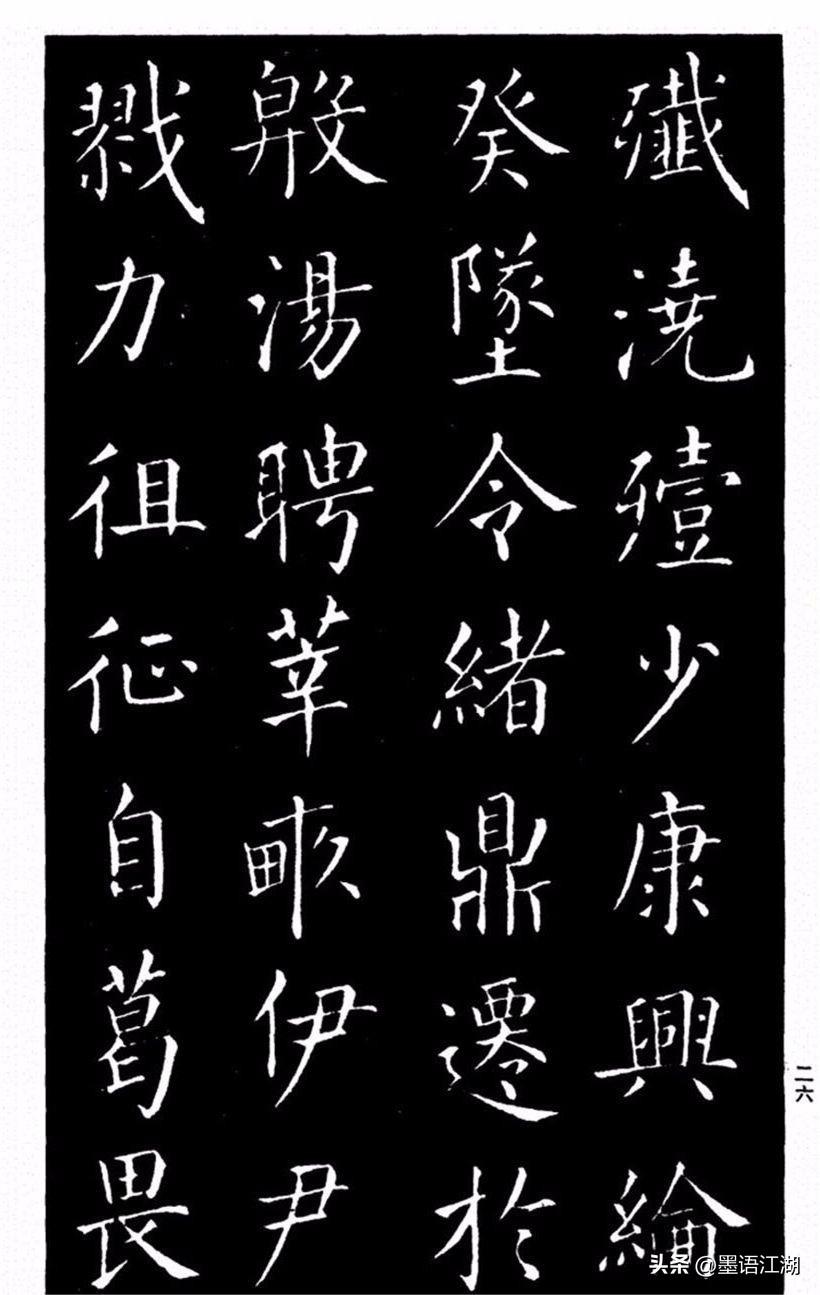 殲澆殪少康興綸
癸墜令緒鼎遷於
殷湯聘莘畝伊尹
戮力徂征自葛畏
二六
头条 @墨语江湖